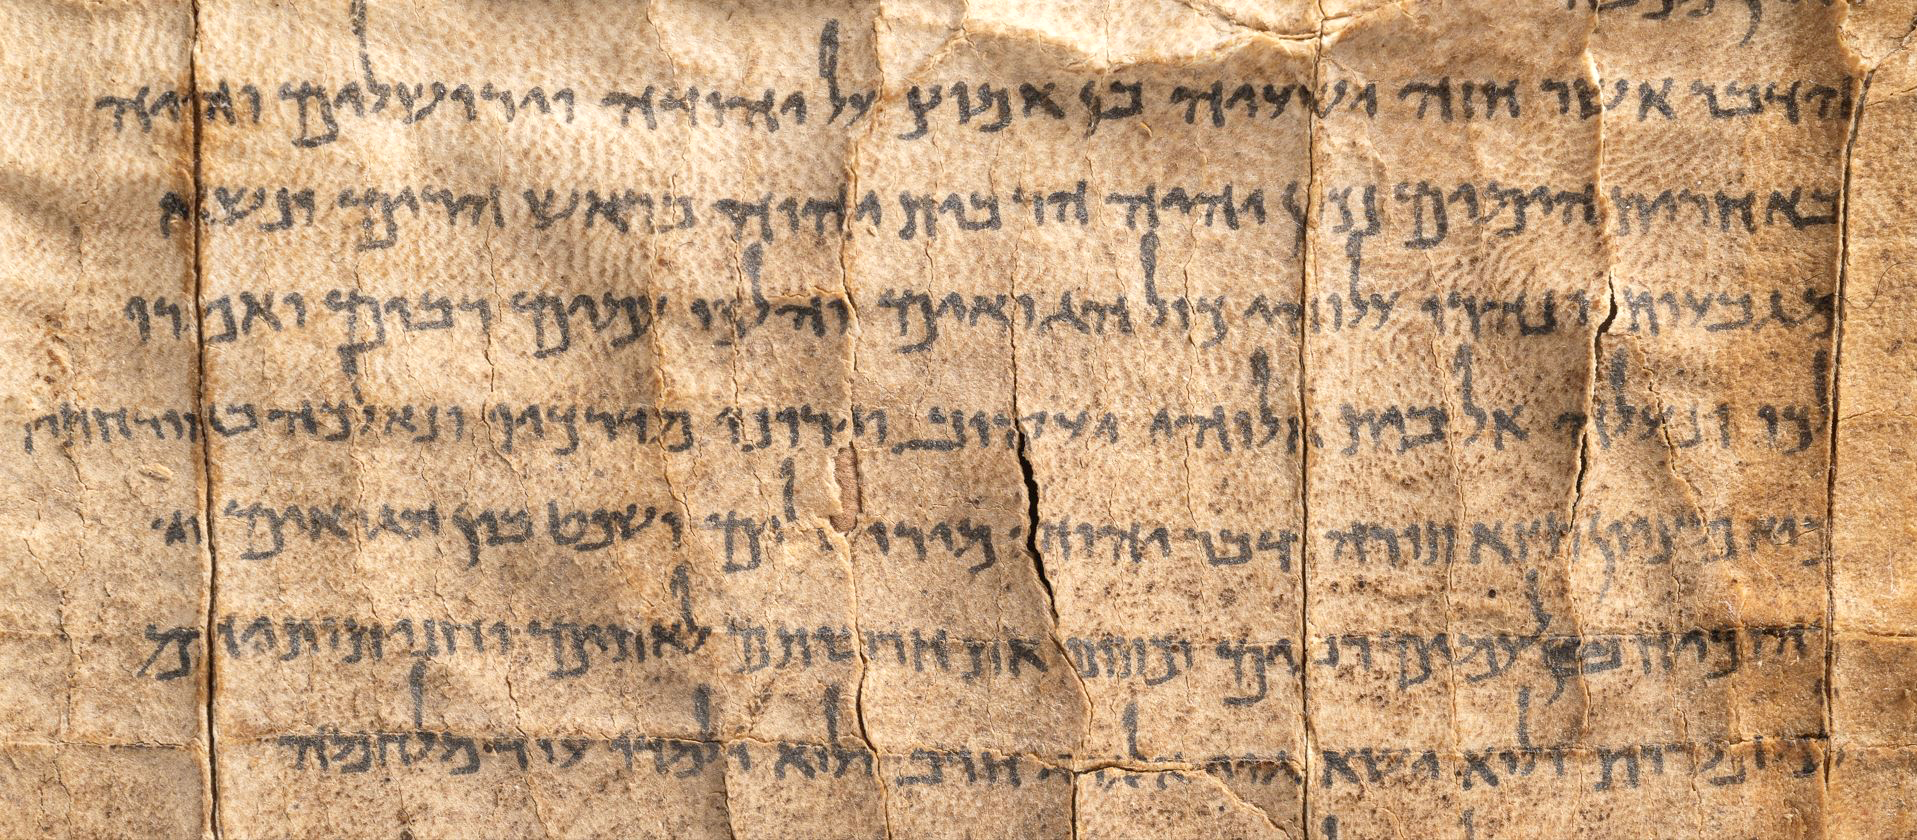 הדבר אשר חזה ישעיה בן אמוץ על יהודה וירושלים והיה
באחרית הימים נכון יהיה הר בית יהוה בראש הרים ונשא
מגבעות ונהרו עלוהי כול הגואים והלכו עמים רבים ואמרו
לכו ונעלה אל בית אלוהי יעקוב וירונו מדרכיו ונאלכה באורחותיו
כיא מציון תצא תורה ודבר יהוה מירושלים ושפט בין הגואים
והוכיח לעמים רבים וכתתו את חרבותם לאתים
ולוא ישא גוי אל גוי חרב ולוא ילמדו עוד מלחמה